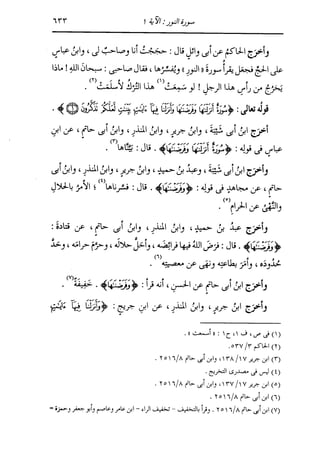 سورة النور : الآية ١
٦٣٣
وأخرَج الحاكمُ عن أبى وائلٍ قال : حجَجْتُ أنا وصاحبٌ لى ، وابنُ عباسٍ
على الحجِّ فجعَل يقرَأُ سورةَ « النورِ » ويُفسِّرُها ، فقال صاحبى : سبحانَ اللهِ ! ماذا
يَخْرُجُ مِن رأسِ هذا الرجلِ ! لو سَمِعتْ(١) هذا التُّركُ لأسلَمتْ(٢) .
قولُه تعالى : ﴿ سُورَةٌ أَنزَلْنَٰهَا وَفَرَضْنَٰهَا وَأَنزَلْنَا فِيهَآ ءَايَٰتٍۭ بَيِّنَٰتٍ لَّعَلَّكُمْ تَذَكَّرُونَ ۝١ ﴾ .
أخرَج ابنُ أبى شَيْبَةَ ، وابنُ جريرٍ ، وابنُ المنذرِ ، وابنُ أبى حاتمٍ ، عن ابنِ
عباسٍ فى قولِه : ﴿ سُورَةٌ أَنزَلْنَٰهَا وَفَرَضْنَٰهَا ﴾ . قال : بَيَّنَّاها(٣) .
وأخرَج ابنُ أبى شَيْبَةَ ، وعبدُ بنُ حميدٍ ، وابنُ جريرٍ ، وابنُ المنذرِ ، وابنُ أبى
حاتمٍ ، عن مجاهدٍ فى قولِه : ﴿ وَفَرَضْنَٰهَا ﴾ . قال : فسَّرناها(٤) ؛ الأمرُ بالحلالِ
والنَّهْىُ عن الحرامِ(٥) .
وأخرَج عبدُ بنُ حميدٍ ، وابنُ المنذرِ ، وابنُ أبى حاتمٍ ، عن قتادةَ :
﴿ وَفَرَضْنَٰهَا ﴾ . قال : فرَض اللهُ فيها فرائضَه ، وأحلَّ حلالَه ، وحرَّم حرامَه ، وحدَّ
حُدُودَه ، وأمَر بطاعتِه ونهَى عن معصيتِه(٦) .
وأخرَج ابنُ أبى حاتمٍ عن الحسنِ ، أنه قرَأ : ﴿ وَفَرَضْنَٰهَا ﴾ . خفيفةً(٧) .
وأخرَج ابنُ جريرٍ ، وابنُ المنذرِ ، عن ابنِ جريجٍ : ﴿ وَأَنزَلْنَا فِيهَآ ءَايَٰتٍۭ
(١) فى ص ، ف ١، ح ١ : « أسمعت » .
(٢) الحاكم ٣/ ٥٣٧.
(٣) ابن جرير ١٧/ ١٣٨، وابن أبى حاتم ٢٥١٦/٨ .
(٤) ليس فى مصدرى التخريج .
(٥) ابن جرير ١٧/ ١٣٧، وابن أبى حاتم ٢٥١٦/٨ .
(٦) ابن أبى حاتم ٢٥١٦/٨ .
(٧) ابن أبى حاتم ٢٥١٦/٨ . وقرأ بالتخفيف - تخفيف الراء - ابن عامر وعاصم وأبو جعفر وحمزة =